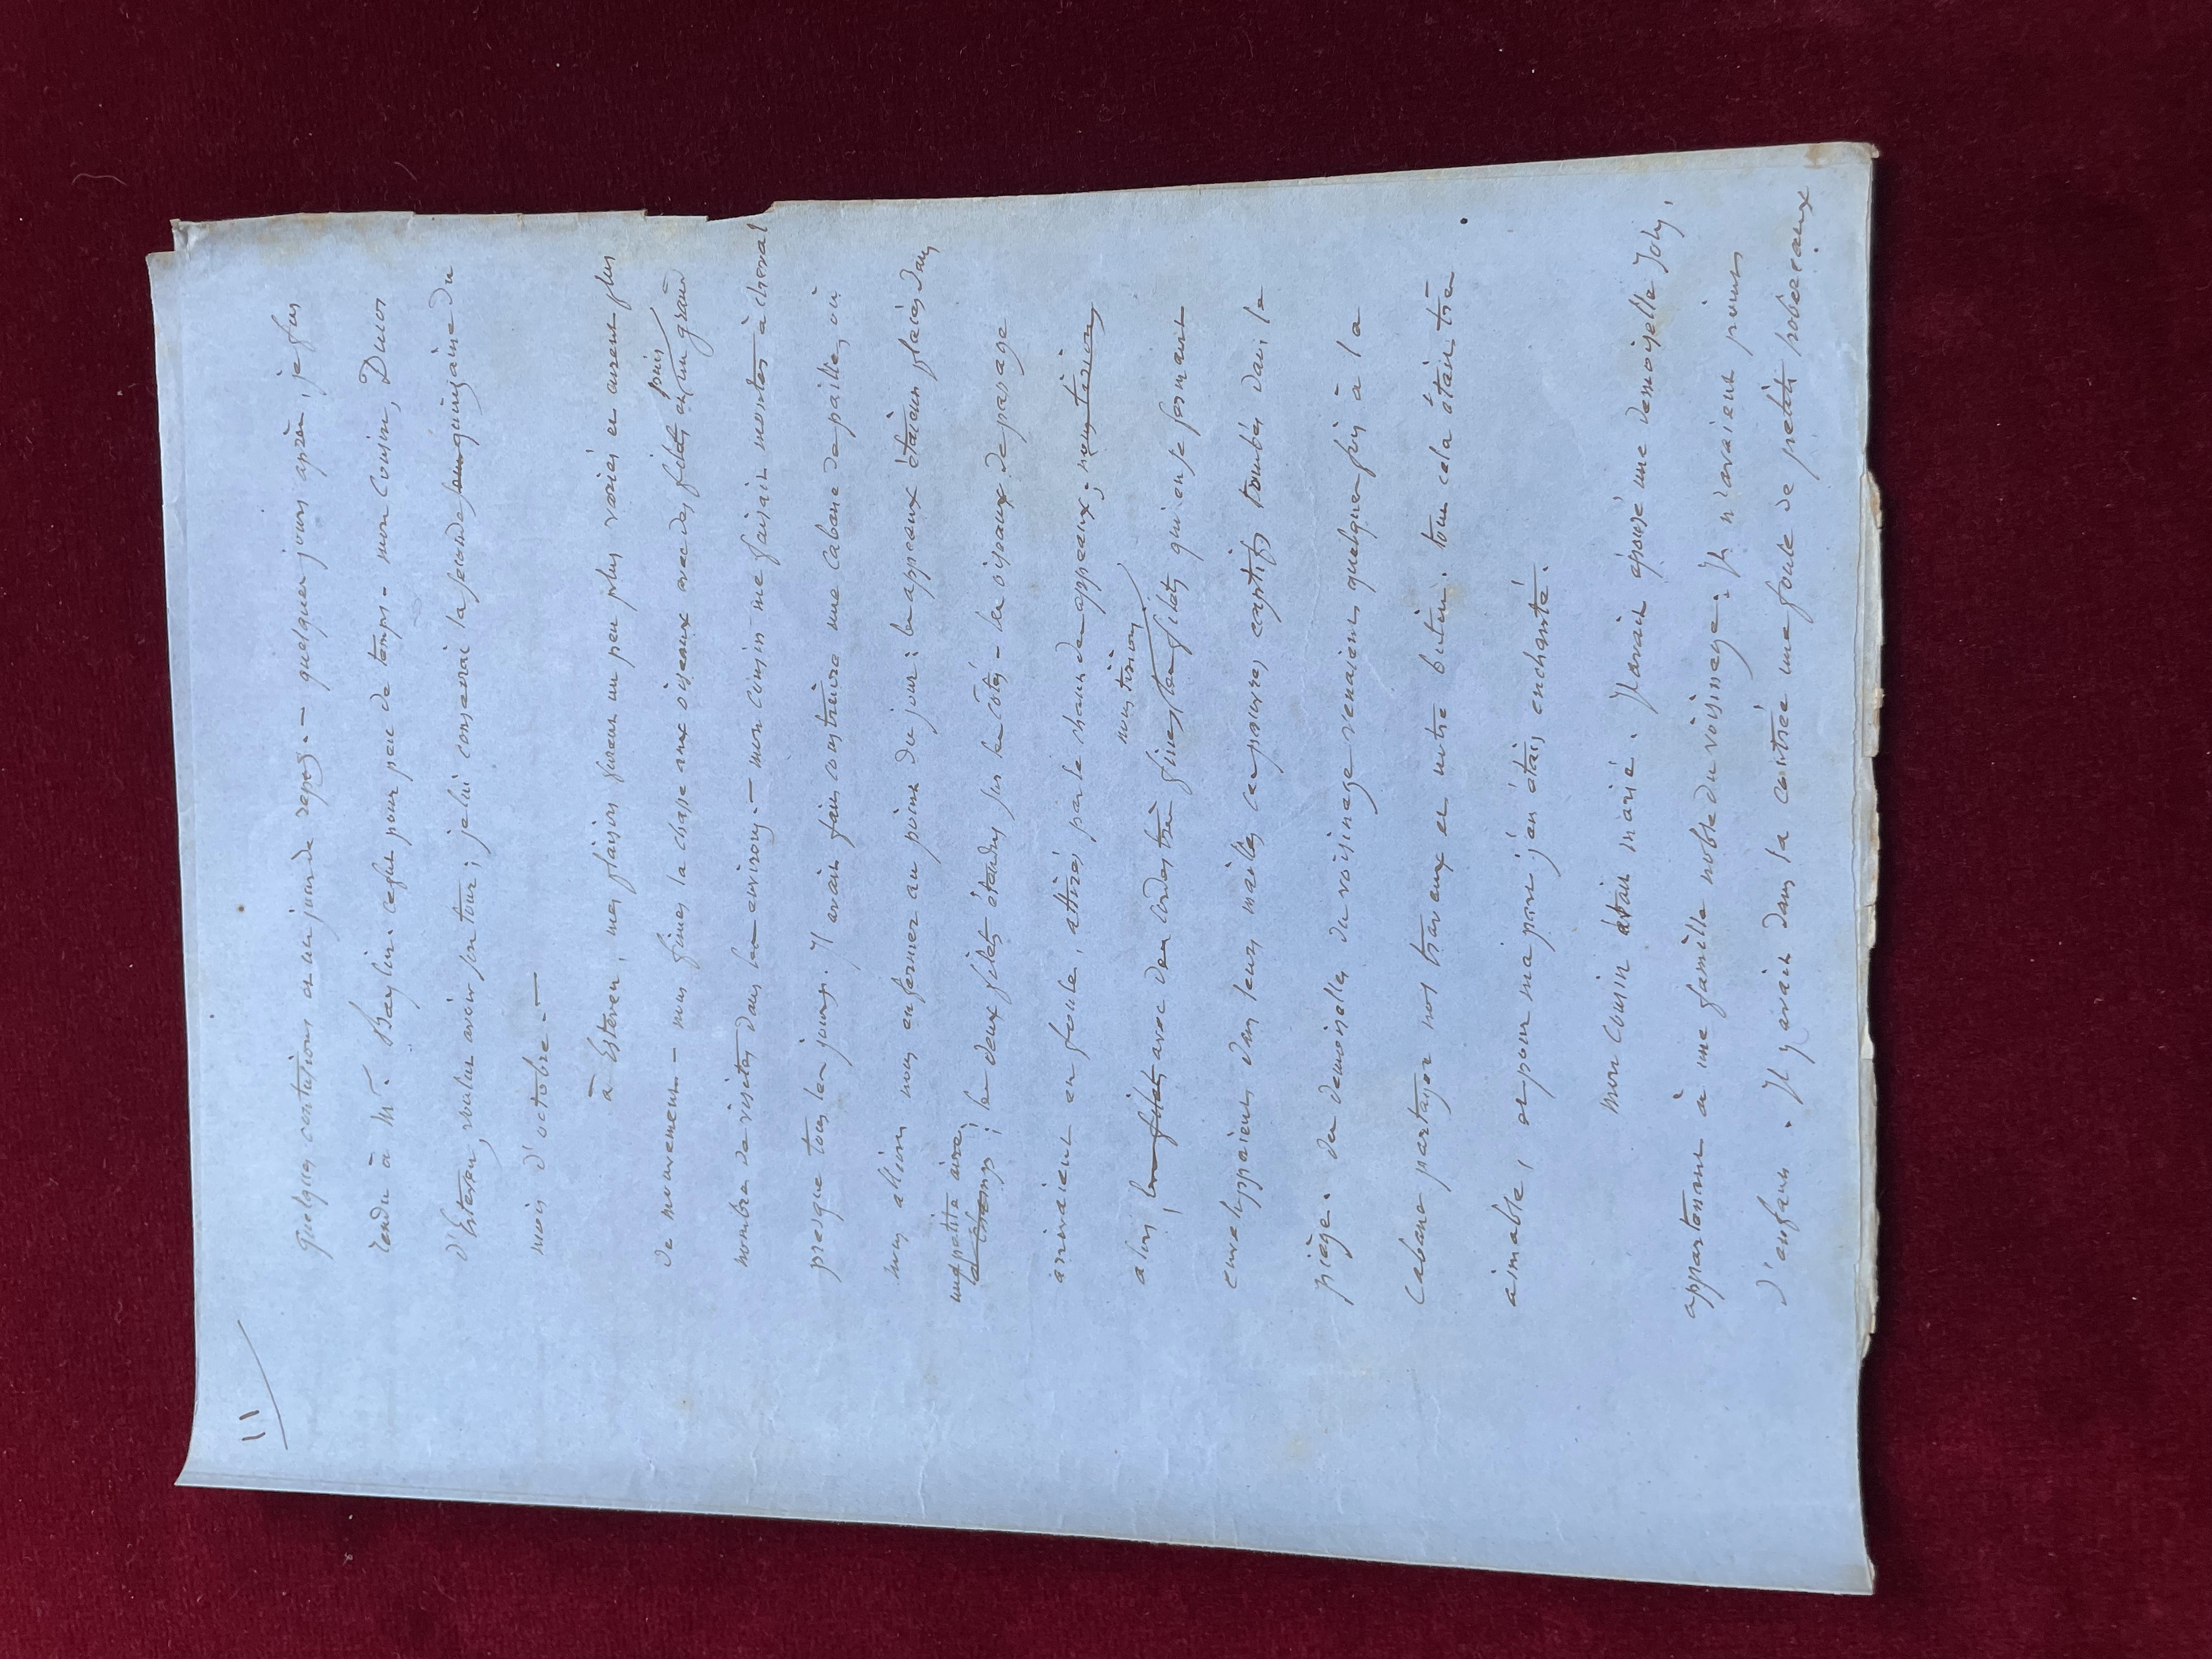 11
quelques contusions et un jour de repos. — quelques jours après, je fus
rendu à Mr. Baylin. ce fut pour peu de temps. mon cousin, Ducos
d'Esteven, voulut avoir son tour ; je lui consacrai la seconde quinzaine du
mois d'octobre. —
à Esteven, mes plaisirs furent un peu plus variés et eurent plus
de mouvement. — nous fîmes la chasse aux oiseaux avec des filets, puis un grand
nombre de visites dans les environs. — mon cousin me faisait monter à cheval
presque tous les jours. Il avait fait construire une cabane de paille, où
nous allions nous enfermer au point du jour : les appeaux étaient placés dans
une petite aire,
; les deux filets étendus sur les côtés — les oiseaux de passage
arrivaient en foule, attirés par le chant des appeaux ; nous tirions
nous tirions
alors, les filets avec des cordes très fines, les filets qui en se fermant
enveloppaient dans leurs mailles ces pauvres captifs tombés dans le
piège. des demoiselles du voisinage venaient quelquefois à la
cabane partager nos travaux et notre butin. tout cela était très
aimable, et pour ma part j'en étais enchanté.
mon cousin était marié. Il avait épousé une demoiselle Joly,
appartenant à une famille noble du voisinage. Ils n'avaient point
d'enfant. Il y avait dans la contrée une foule de petits hobereaux